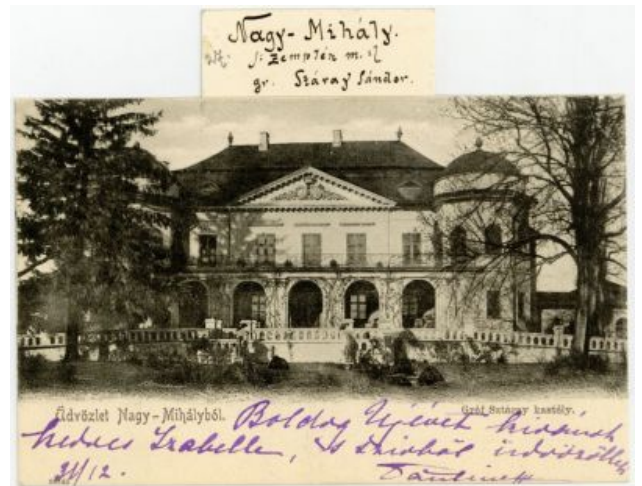 Nagy-Mihály.
Zemplén m.
gr. Sztáray Sándor.
Üdvözlet Nagy-Mihályból.
Gróf Sztáray kastély.
Boldog Újévet kívánok
kedves Izabelle, s
31/12.